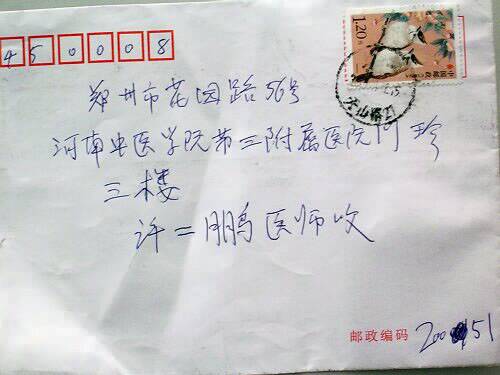 450008
1.20元
中国邮政
郑州市花园路56号
河南中医学院第三附属医院门珍
三楼
许二鹏医师收
邮政编码